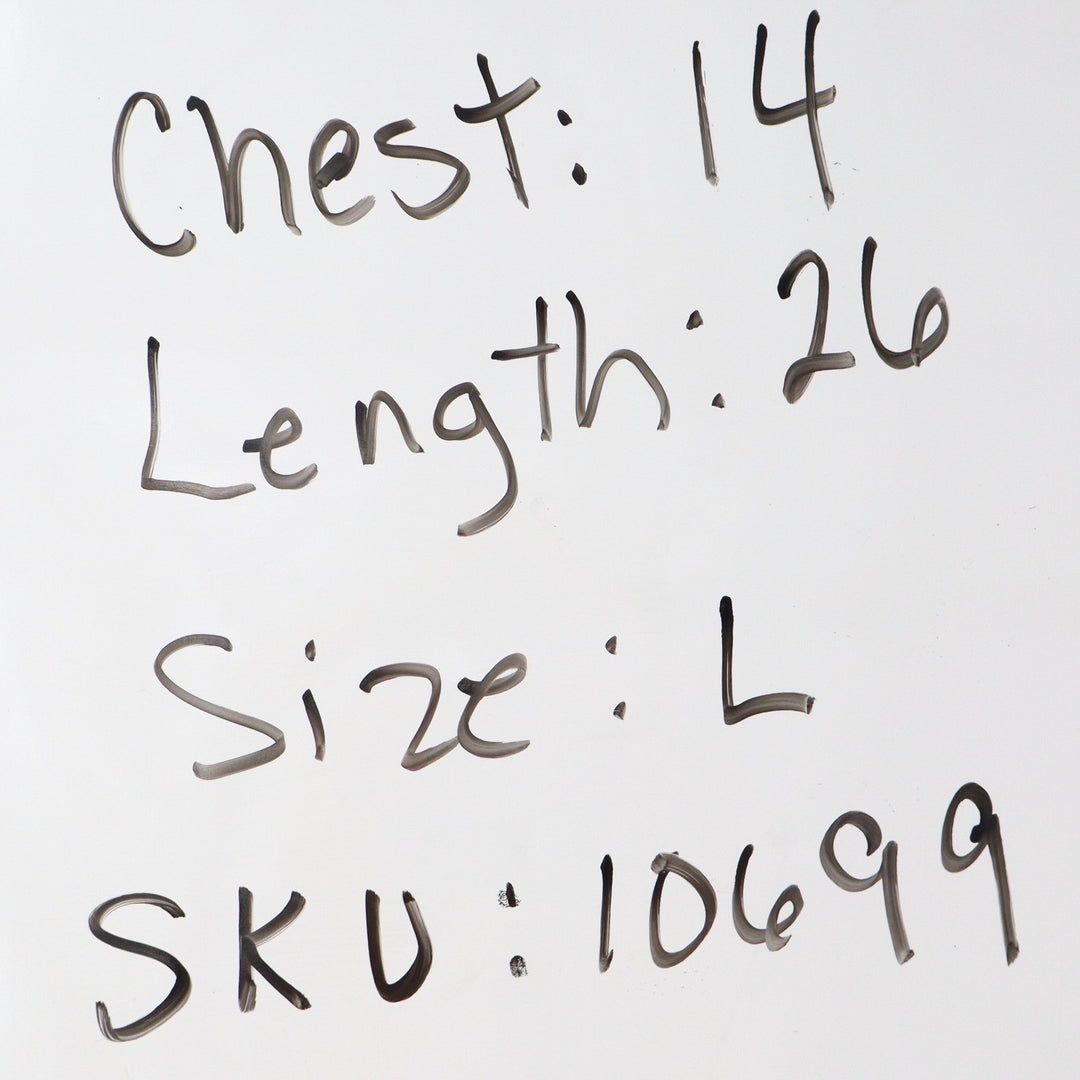 Chest: 14
Length: 26
Size: L
SKU: 10699